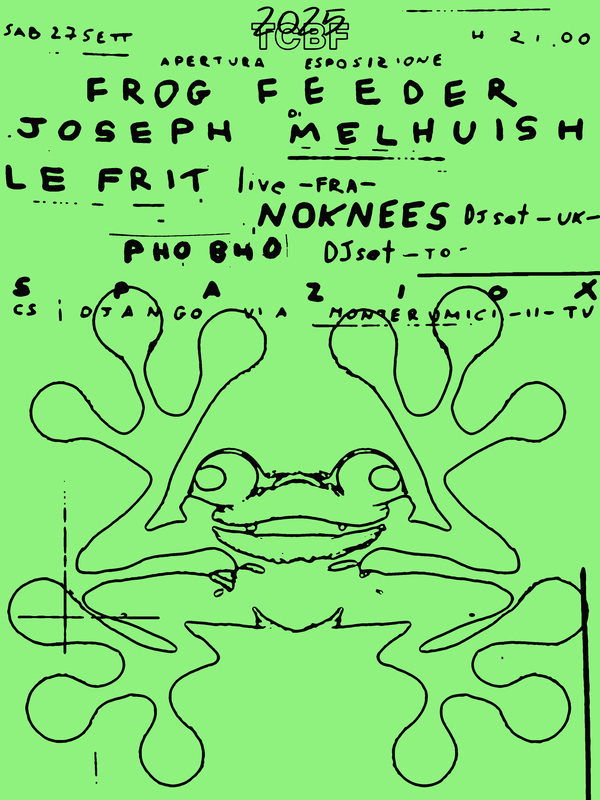 2025
TCBF
SAB 27 SETT
H 21.00
APERTURA ESPOSIZIONE
FROG FEEDER
DI
JOSEPH MELHUISH
LE FRIT live -FRA-
NOKNEES DJset -UK-
PHO BHO DJset -TO-
SPAZIOX
CS DJANGO VIA MONTERUMICI -11- TV